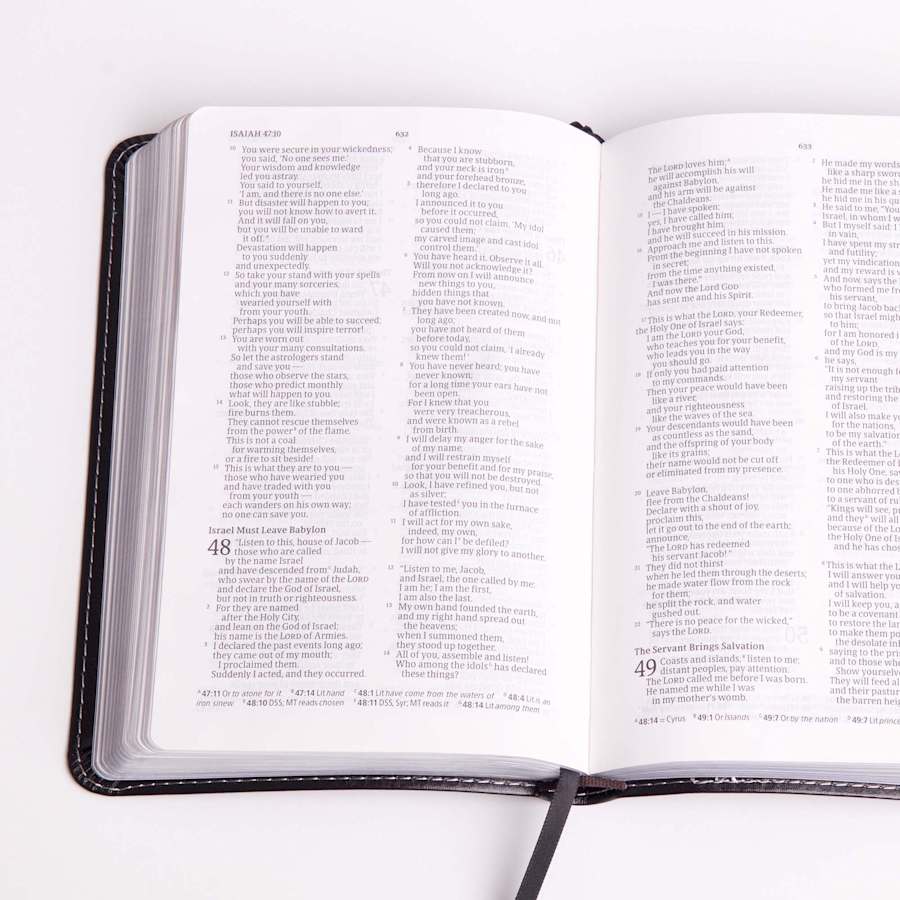 ISAIAH 47:10
632
10 You were secure in your wickedness;
you said, ‘No one sees me.’
Your wisdom and knowledge
led you astray.
You said to yourself,
‘I am, and there is no one else.’
11 But disaster will happen to you;
you will not know how to avert it.
And it will fall on you,
but you will be unable to ward
it off.A
Devastation will happen
to you suddenly
and unexpectedly.
12 So take your stand with your spells
and your many sorceries,
which you have
wearied yourself with
from your youth.
Perhaps you will be able to succeed;
perhaps you will inspire terror!
13 You are worn out
with your many consultations.
So let the astrologers stand
and save you —
those who observe the stars,
those who predict monthly
what will happen to you.
14 Look, they are like stubble;
fire burns them.
They cannot rescue themselves
from the powerB of the flame.
This is not a coal
for warming themselves,
or a fire to sit beside!
15 This is what they are to you —
those who have wearied you
and have traded with you
from your youth —
each wanders on his own way;
no one can save you.
Israel Must Leave Babylon
48 “Listen to this, house of Jacob —
those who are called
by the name Israel
and have descended fromC Judah,
who swear by the name of the LORD
and declare the God of Israel,
but not in truth or righteousness.
2 For they are named
after the Holy City,
and lean on the God of Israel;
his name is the LORD of Armies.
3 I declared the past events long ago;
they came out of my mouth;
I proclaimed them.
Suddenly I acted, and they occurred.
4 Because I know
that you are stubborn,
and your neck is ironD
and your forehead bronze,
5 therefore I declared to you
long ago.
I announced it to you
before it occurred,
so you could not claim, ‘My idol
caused them;
my carved image and cast idol
control them.’
6 You have heard it. Observe it all.
Will you not acknowledge it?
From now on I will announce
new things to you,
hidden things that
you have not known.
7 They have been created now, and not
long ago;
you have not heard of them
before today,
so you could not claim, ‘I already
knew them!’
8 You have never heard; you have
never known;
for a long time your ears have not
been open.
For I knew that you
were very treacherous,
and were known as a rebel
from birth.
9 I will delay my anger for the sake
of my name,
and I will restrain myself
for your benefit and for my praise,
so that you will not be destroyed.
10 Look, I have refined you, but not
as silver;
I have testedE you in the furnace
of affliction.
11 I will act for my own sake,
indeed, my own,
for how can IF be defiled?
I will not give my glory to another.
12 “Listen to me, Jacob,
and Israel, the one called by me:
I am he; I am the first,
I am also the last.
13 My own hand founded the earth,
and my right hand spread out
the heavens;
when I summoned them,
they stood up together.
14 All of you, assemble and listen!
Who among the idolsG has declared
these things?
A 47:11 Or to atone for it B 47:14 Lit hand C 48:1 Lit have come from the waters of D 48:4 Lit is an
iron sinew E 48:10 DSS; MT reads chosen F 48:11 DSS, Syr; MT reads it G 48:14 Lit among them
633
The LORD loves him;A
he will accomplish his will
against Babylon,
and his arm will be against
the Chaldeans.
15 I — I have spoken;
yes, I have called him;
I have brought him,
and he will succeed in his mission.
16 Approach me and listen to this.
From the beginning I have not spoken
in secret;
from the time anything existed,
I was there.”
And now the Lord GOD
has sent me and his Spirit.
17 This is what the LORD, your Redeemer,
the Holy One of Israel says:
I am the LORD your God,
who teaches you for your benefit,
who leads you in the way
you should go.
18 If only you had paid attention
to my commands.
Then your peace would have been
like a river,
and your righteousness
like the waves of the sea.
19 Your descendants would have been
as countless as the sand,
and the offspring of your body
like its grains;
their name would not be cut off
or eliminated from my presence.
20 Leave Babylon,
flee from the Chaldeans!
Declare with a shout of joy,
proclaim this,
let it go out to the end of the earth;
announce,
“The LORD has redeemed
his servant Jacob!”
21 They did not thirst
when he led them through the deserts;
he made water flow from the rock
for them;
he split the rock, and water
gushed out.
22 “There is no peace for the wicked,”
says the LORD.
The Servant Brings Salvation
49 Coasts and islands,B listen to me;
distant peoples, pay attention.
The LORD called me before I was born.
He named me while I was
in my mother’s womb.
2 He made my words
like a sharp
he hid me in the
He made me like a
he hid me in his
3 He said to me, “You
Israel, in whom I
4 But I myself said: I
in vain,
I have spent my
and futility;
yet my vindication
and my reward is
5 And now, says the
who formed me
his servant,
to bring Jacob back
so that Israel might
to him;
for I am honored
of the LORD,
and my God is my
6 he says,
“It is not enough
my servant
raising up the
and restoring the
of Israel.
I will also make
for the nations,
to be my salvation
of the earth.”
7 This is what the
the Redeemer of
his Holy One, says
to one who is
to one abhorred
to a servant of
“Kings will see,
and theyC will all
because of the
the Holy One of
and he has
8 This is what the
I will answer you
and I will help
of salvation.
I will keep you,
to be a covenant
to restore the land
to make them
the desolate
9 saying to the
and to those who
Show yourselves
They will feed
and their
the barren
A 48:14 = Cyrus B 49:1 Or Islands C 49:7 Or by the nation D 49:7 Lit